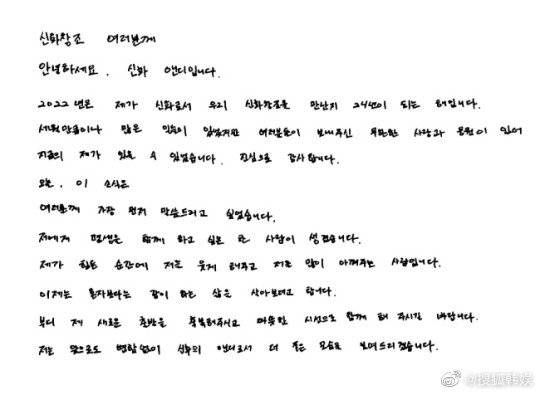 신화창조 여러분께
안녕하세요. 신화 앤디입니다.
2022년은 제가 신화로서 우리 신화창조를 만난지 24년이 되는 해입니다.
세월만큼이나 많은 일들이 있었지만 여러분들이 보내주신 무한한 사랑과 응원이 있어
지금의 제가 있을 수 있었습니다. 진심으로 감사합니다.
오늘, 이 소식은
여러분께 가장 먼저 말씀드리고 싶었습니다.
저에게 평생을 함께 하고 싶은 한 사람이 생겼습니다.
제가 힘든 순간에 저를 웃게 해주고 저를 많이 아껴주는 사람입니다.
이제는 혼자보다는 같이 하는 삶을 살아보려고 합니다.
부디 제 새로운 출발을 축복해주시고 따뜻한 시선으로 함께 해 주시길 바랍니다.
저는 앞으로도 변함없이 신화의 앤디로서 더 좋은 모습을 보여드리겠습니다.
@搜狐韩娱